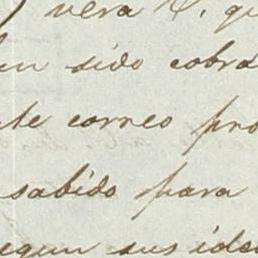 vera V. qu
en sido cobra
te correo pro
sabido para
egun sus ide